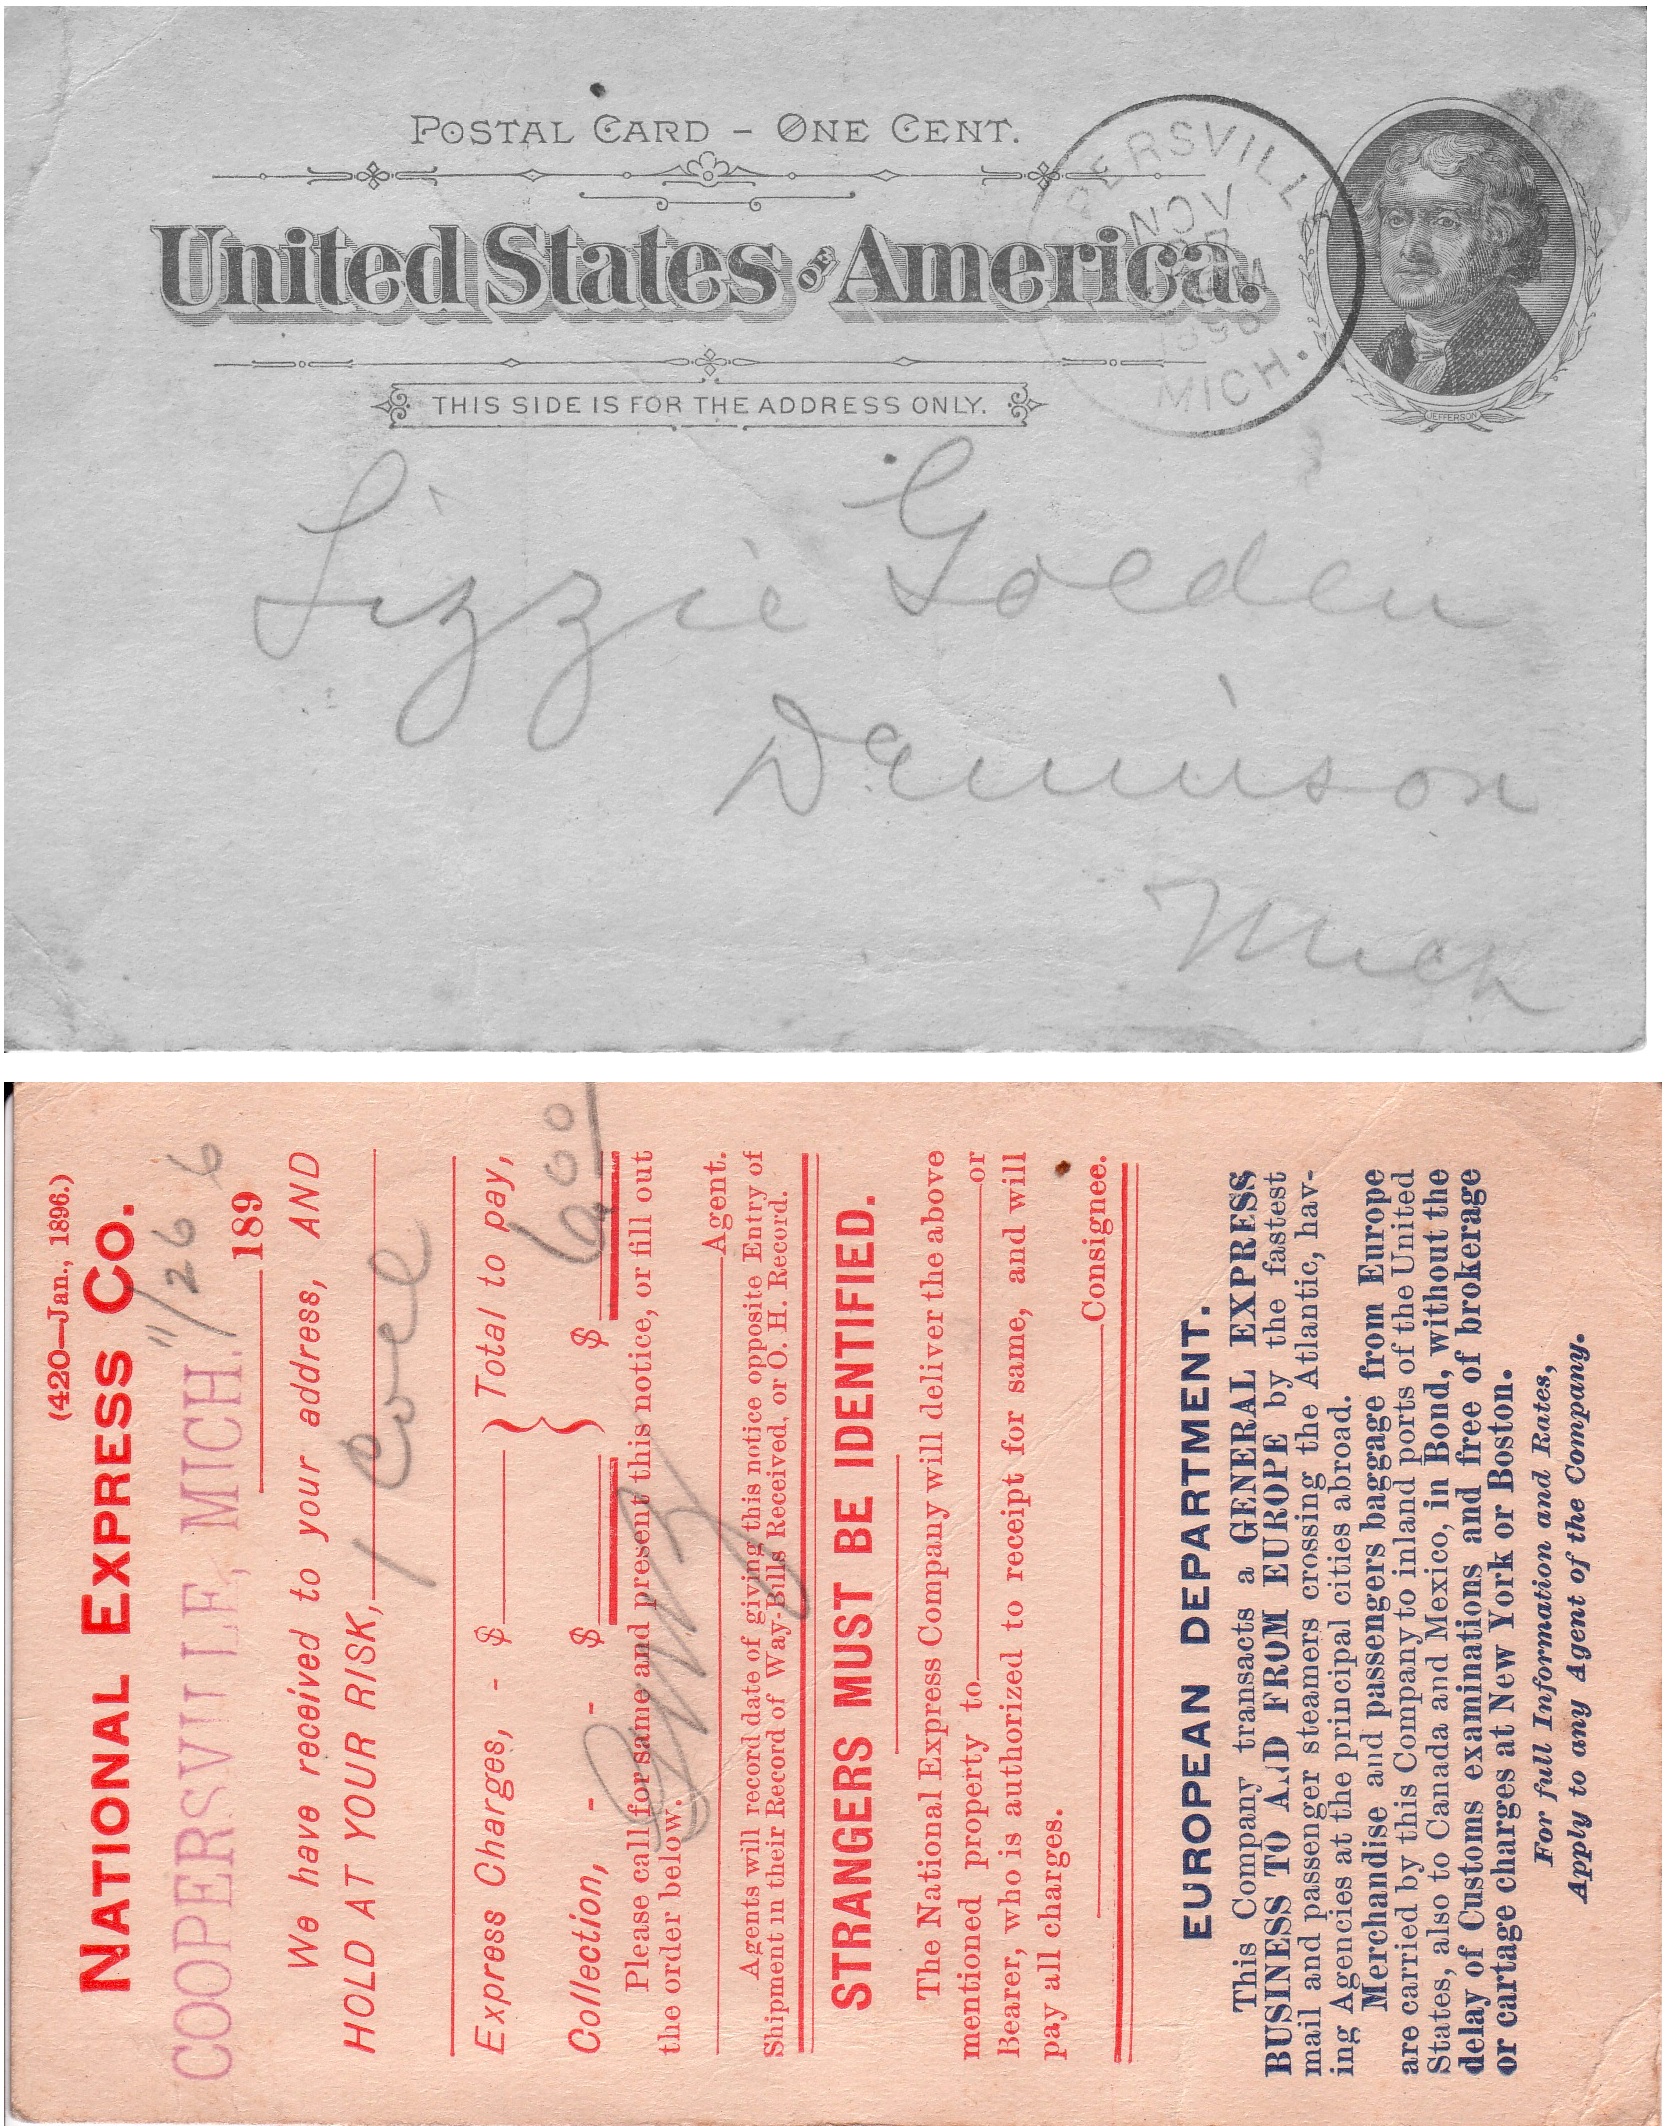 POSTAL CARD – ONE CENT.
United States OF America.
THIS SIDE IS FOR THE ADDRESS ONLY.
OPERSVILLE
NOV
1896
MICH.
JEFFERSON
Lizzie Golden
Dennison
Mich
(420—Jan., 1896.)
NATIONAL EXPRESS CO.
COOPERSVILLE, MICH. 11/26 6
189
We have received to your address, AND
HOLD AT YOUR RISK, 1
Express Charges, - $ } Total to pay,
Collection, - - $ } $ 600
Please call for same and present this notice, or fill out
the order below.
Agent.
Agents will record date of giving this notice opposite Entry of
Shipment in their Record of Way-Bills Received, or O. H. Record.
STRANGERS MUST BE IDENTIFIED.
The National Express Company will deliver the above
mentioned property to or
Bearer, who is authorized to receipt for same, and will
pay all charges.
Consignee.
EUROPEAN DEPARTMENT.
This Company transacts a GENERAL EXPRESS
BUSINESS TO AND FROM EUROPE by the fastest
mail and passenger steamers crossing the Atlantic, hav-
ing Agencies at the principal cities abroad.
Merchandise and passengers baggage from Europe
are carried by this Company to inland ports of the United
States, also to Canada and Mexico, in Bond, without the
delay of Customs examinations and free of brokerage
or cartage charges at New York or Boston.
For full Information and Rates,
Apply to any Agent of the Company.